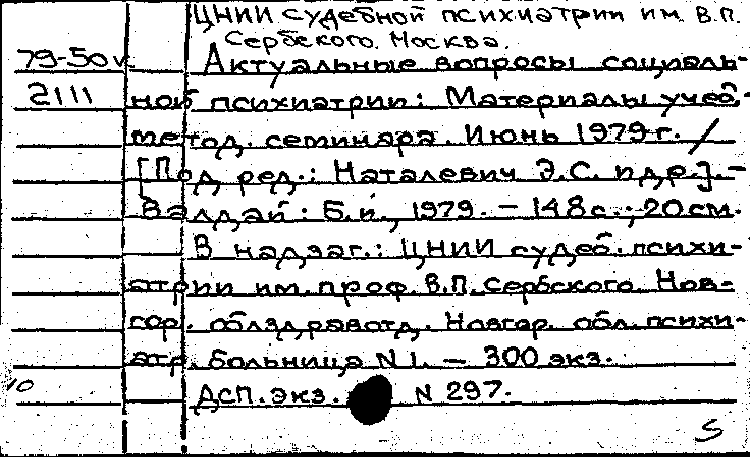 ЦНИИ судебной психиатрии им. В.П.
Сербского. Москва.
79-50v Актуальные вопросы социаль-
2111 ной психиатрии: Материалы учеб.-
метод. семинара. Июнь 1979 г. /
[Под ред.: Наталевич Э.С. и др.]. -
Валдай: Б.и., 1979. - 148 с.; 20 см.
В надзаг.: ЦНИИ судеб. психи-
атрии им. проф. В.П. Сербского. Нов-
гор. облздравотд. Новгор. обл. психи-
атр. больница N 1. - 300 экз.
10 ДСП. экз. N 297.
5